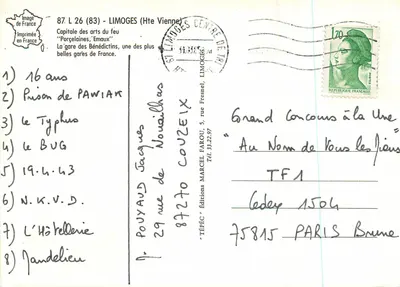 Image
de France
Imprimée
en France
87 L 26 (83) - LIMOGES (Hte Vienne)
Capitale des arts du feu
"Porcelaines, Emaux"
La gare des Bénédictins, une des plus
belles gares de France.
1) 16 ans
2) Prison de PAWIAK
3) Le Typhus
4) Le BUG
5) 19.4.43
6) N.K.V.D.
7) L'Hôtellerie
8) Mandelieu
M. POUYAUD Jacques
29 rue de Nouailhas
87270 COUZEIX
"TÉPÉC" Éditions MARCEL FARGOU, 5, rue Fresnel, LIMOGES
87 LIMOGES CENTRE DE TRI
1,70
RÉPUBLIQUE FRANÇAISE
Grand Concours à la Une
"Au Nom de tous les Miens"
TF1
Cedex 1504
75815 PARIS Brune